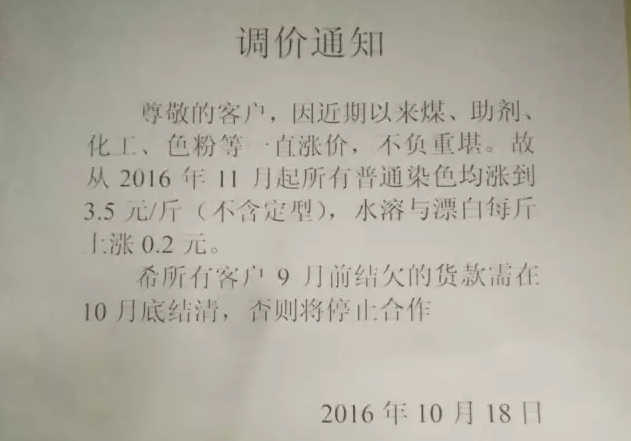 调价通知
尊敬的客户，因近期以来煤、助剂、
化工、色粉等一直涨价，不负重堪。故
从 2016 年 11 月起所有普通染色均涨到
3.5 元/斤（不含定型），水溶与漂白每斤
上涨 0.2 元。
希所有客户 9 月前结欠的货款需在
10 月底结清，否则将停止合作
2016 年 10 月 18 日